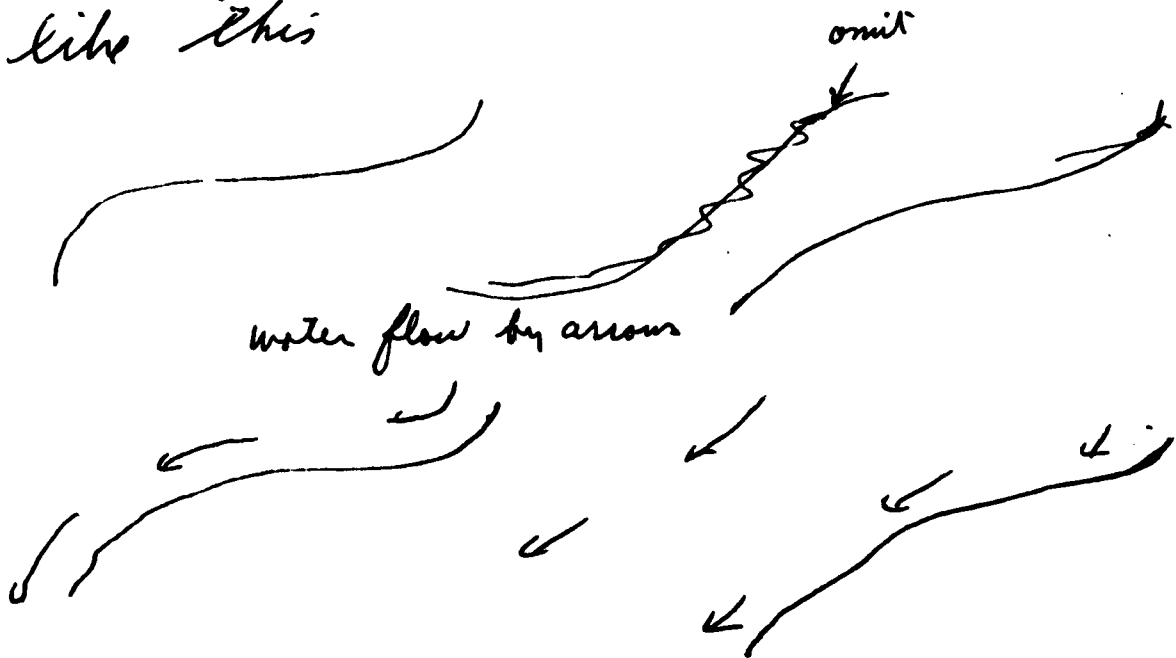 like this
omit
water flow by arrows